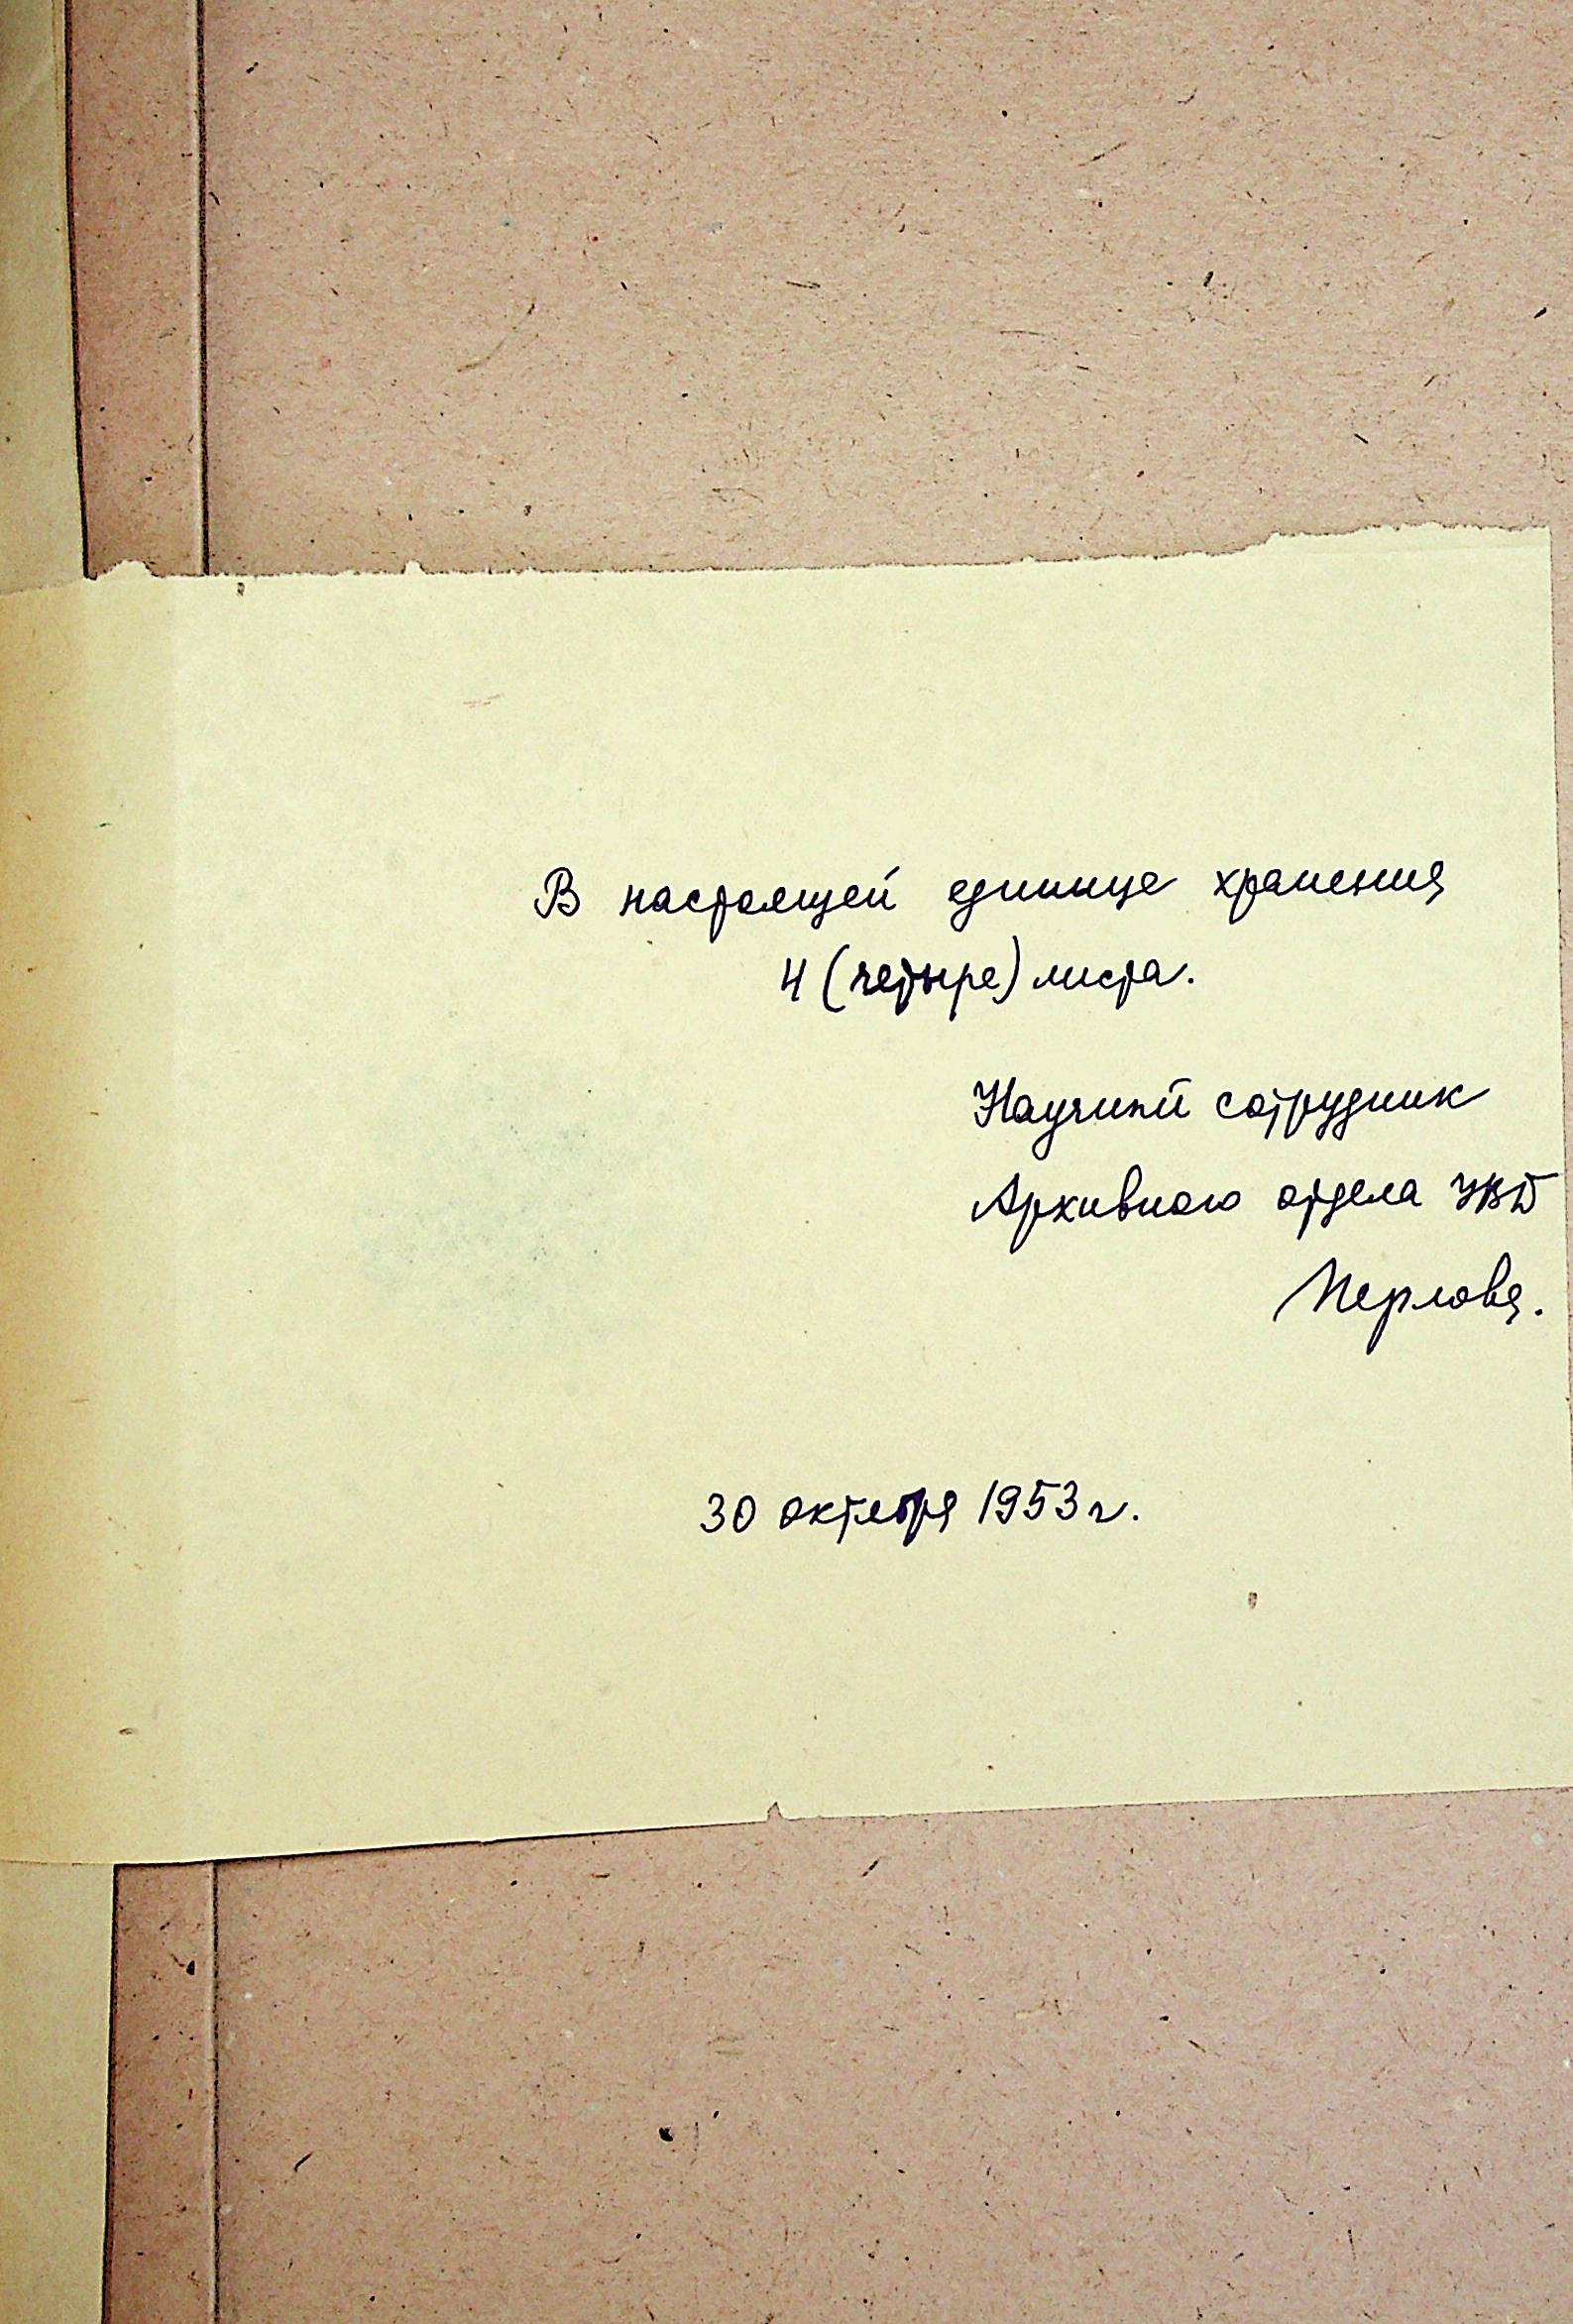 В настоящей единице хранения
4 (четыре) листа.
Научный сотрудник
Архивного отдела УВД
Перлова.
30 октября 1953 г.